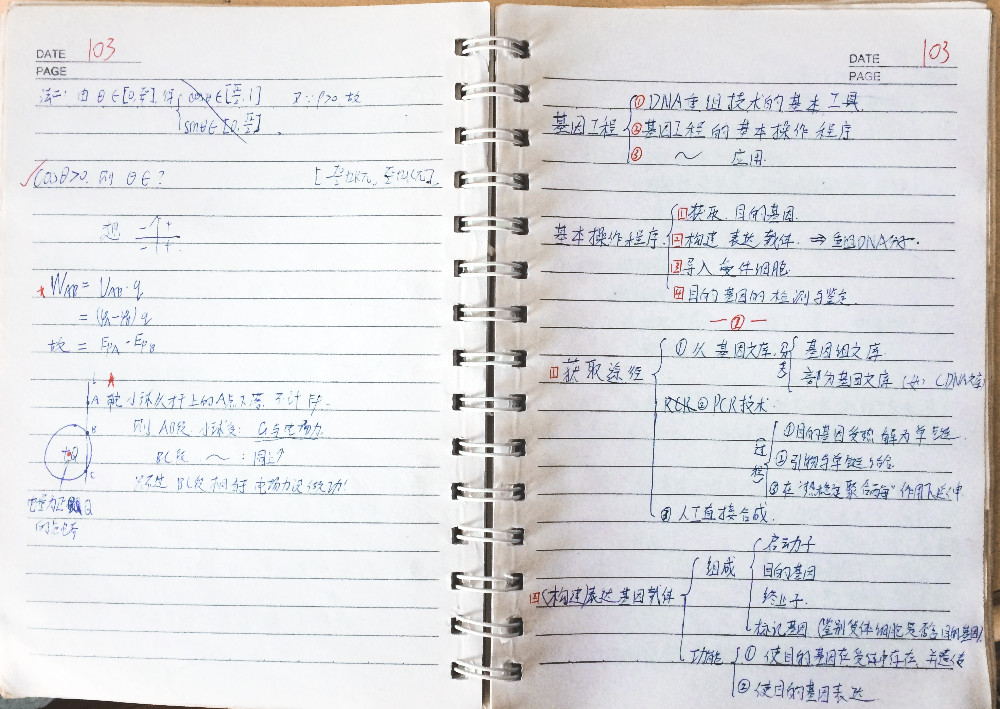 DATE 103
PAGE
法二: 由 θ∈[0, π/2], 得 { cosθ∈[π/2, 1] 又∵ρ>0 故
sinθ∈[0, π/2]
cosθ>0, 则 θ∈?
想 - + - +
W_AB = U_AB · q
= (φ_A - φ_B) q
故 = E_pA - E_pB
A
A 小球从杆上的A点下落, 不计
B 则 AB段 小球受: G与电场力
+Q BC段 ~ : 同上
C 只不过 BC段相当于电场力没做功
电量为 Q
的点电荷
DATE 103
PAGE
基因工程 { ① DNA重组技术的基本工具
② 基因工程的基本操作程序
③ ~ 应用.
基本操作程序 { 1 获取 目的基因.
2 构建 表达载体. ⇒ 重组DNA分子.
3 导入 受体细胞
4 目的基因的检测与鉴定.
— ② —
1 获取途径 { ① 从 基因文库 { 基因组文库
部分基因文库 (cDNA文库)
PCR ② PCR技术.
过程 { ① 目的基因受热 解为单链
② 引物与单链结合
③ 在“热稳定聚合酶”作用下延伸
③ 人工直接合成.
构建表达基因载体 { 组成 { 启动子
目的基因
终止子.
标记基因 (鉴别受体细胞是否含目的基因)
功能 { ① 使目的基因在受体中存在, 并遗传
② 使目的基因表达